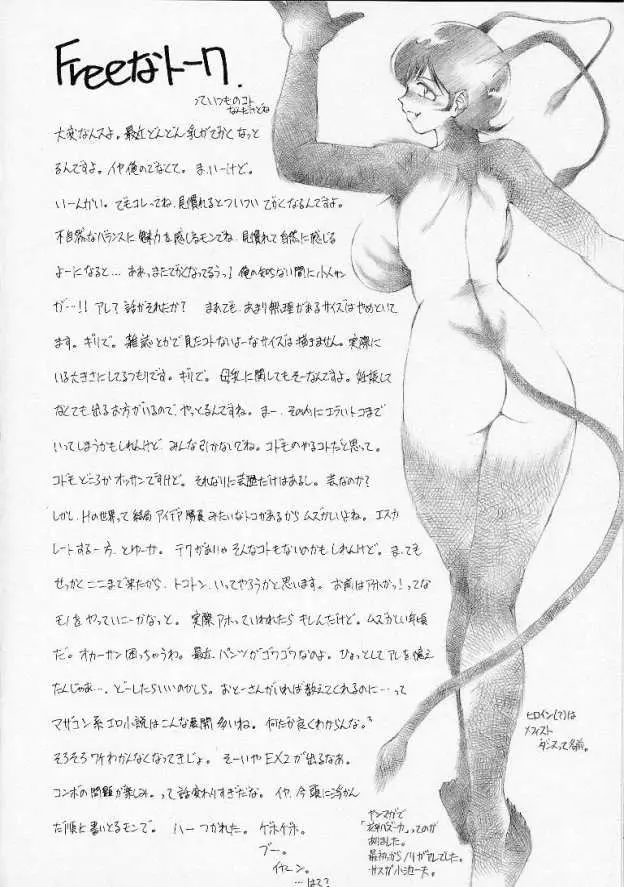 Freeなトーク.
っていつものコト
なんだけどね
大変なんスよ。最近どんどん乳がでかくなっと
るんですよ。イヤ俺のでなくて。ま、いーけど。
いーんかい。でもコレってね、見慣れるとついついでかくなるんですよ。
不自然なバランスに魅力を感じるモンでね、見慣れて自然に感じる
よーになると… ああっまたでかくなってるうっ! 俺の知らない間に小人サン
が…!! アレ?話がそれたか? まぁでも、あまり無理があるサイズはやめといて
ます。ギリで。雑誌とかで見たコトないよーなサイズは描きません。実際に
いる大きさにしてるつもりです。ギリで。母乳に関してもそーなんですよ。妊娠して
なくても出るお方がいるので、やっとるんですね。まー、その内にエライトコまで
いってしまうかもしれんけど、みんな引かないでね。コドモのやるコトだと思って。
コドモどころかオッサンですけど。それなりに芸歴だけはあるし。芸なのか?
しかし、Hの世界って結局アイデア勝負みたいなトコがあるからムズかしいよね。エスカ
レートする一方、とゆーか。テクがありゃそんなコトもないのかもしれんけど。ま、でも
せっかくここまで来たから、トコトン、いってやろうかと思います。お前はアホかっ!ってな
モノをやっていこーかなっと。実際アホっていわれたらキレんだけど。ムズかしい年頃
だ。オカーサン困っちゃうわ。最近パンツがゴワゴワなのよ。ひょっとしてアレを憶え
たんじゃあ…、どーしたらいいのかしら。おとーさんがいれば教えてくれるのに…って
マザコン系エロ小説はこんな展開多いね。何だか良くわからんな。
そろそろワケわかんなくなってきじょ。そーいやEX2が出るなあ。
コンボの問題が楽しみ。って話変わりすぎだな。イヤ、今頭に浮かん
だ順に書いとるモンで。ハーつかれた。ゲホゲホ。
ブー。
イヤーン。
…はて?
ヒロイン(?)は
メフィスト
ダンスって名前。
ヤンマガで
ってのが
ありました。
最初からノリがアレでした。
サスガ小池一夫。